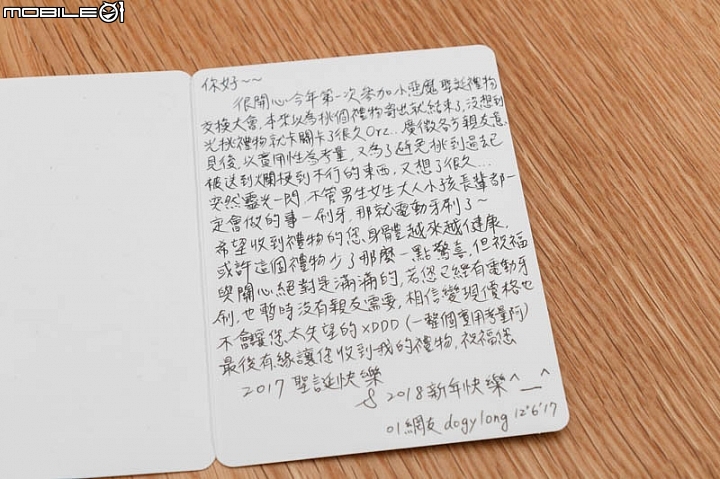 MOBILE01
你好~~
很開心今年第一次參加小惡魔聖誕禮物
交換大會,本來以為挑個禮物寄出就結束了,沒想到
光挑禮物就卡關卡了很久Orz... 廣徵各方親友意
見後,以實用性為考量,又為了避免挑到過去紀
被送到爛梗到不行的東西,又想了很久...
突然靈光一閃,不管男生女生大人小孩長輩都一
定會做的事—刷牙,那就電動牙刷了~
希望收到禮物的您,身體越來越健康,
或許這個禮物少了那麼一點驚喜,但祝福
與開心絕對是滿滿的,若您已經有電動牙
刷,也暫時沒有親友需要,相信變現價格也
不會讓您太失望的XDDD(一整個實用考量阿)
最後有緣讓您收到我的禮物,祝福您
2017 聖誕快樂
& 2018新年快樂^__^
01網友 dogylong 12'6'17